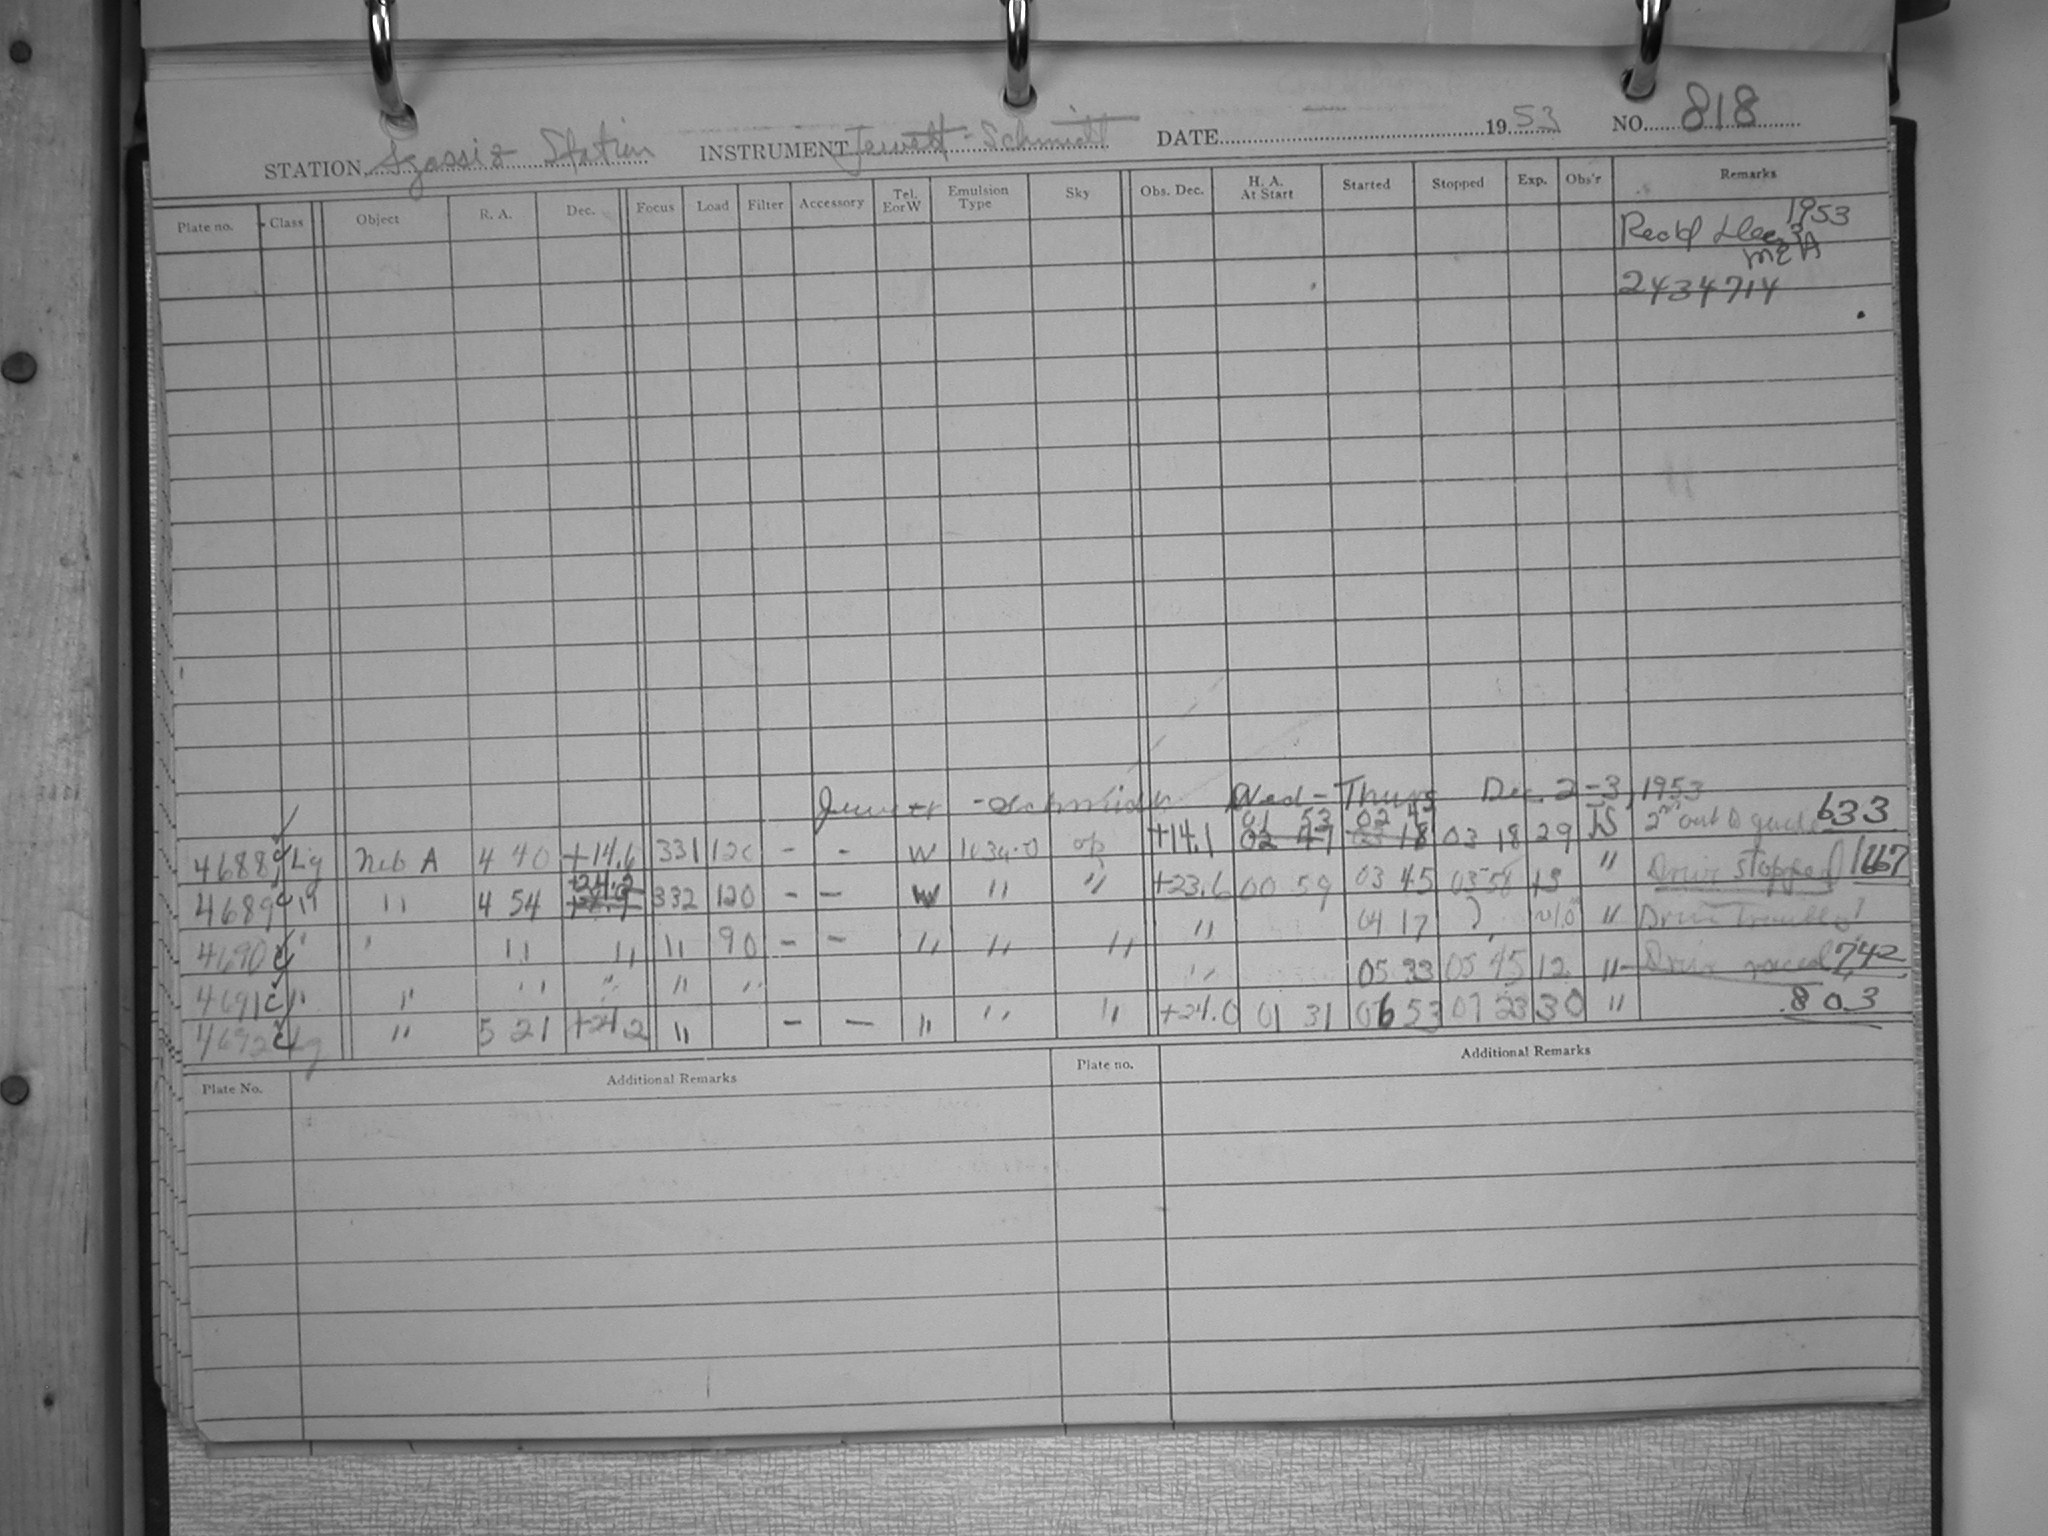 STATION Agassiz Station INSTRUMENT Jewett-Schmidt DATE 19 53 NO. 818
Plate no. Class Object R. A. Dec. Focus Load Filter Accessory Tel. E or W Emulsion Type Sky Obs. Dec. H. A. At Start Started Stopped Exp. Obs'r Remarks
Rec'd Dec 1953
MEA
2434714
Jewett - Schmidt Wed - Thurs Dec. 2-3, 1953
01 53 02 45
4688 Lg Neb A 4 40 +14.6 331 120 - - W 1034-0 op +14.1 02 47 03 18 03 18 29 2nd out 633
+24.2
4689 " " 4 54 332 120 - - W " " +23.6 00 59 03 45 03 58 13 " Drive stopped 167
4690 " " " " " 90 - - " " " " 04 17 ? ~10 " Drive trouble
4691 " " " " " " " 05 33 05 45 12 " Drive raced 742
4692 Lg " 5 21 +24.2 " - - " " " +24.0 01 31 06 53 07 23 30 " .803
Plate No. Additional Remarks Plate no. Additional Remarks